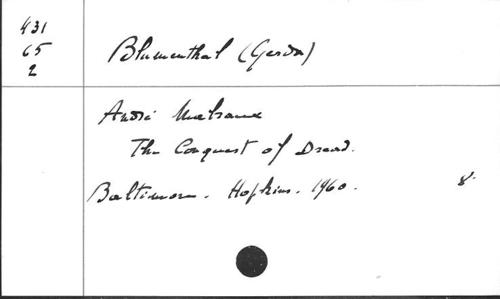 431
65
2
Blumenthal (Gerda)
André Malraux
The Conquest of Dread.
Baltimore. Hopkins. 1960. 8°